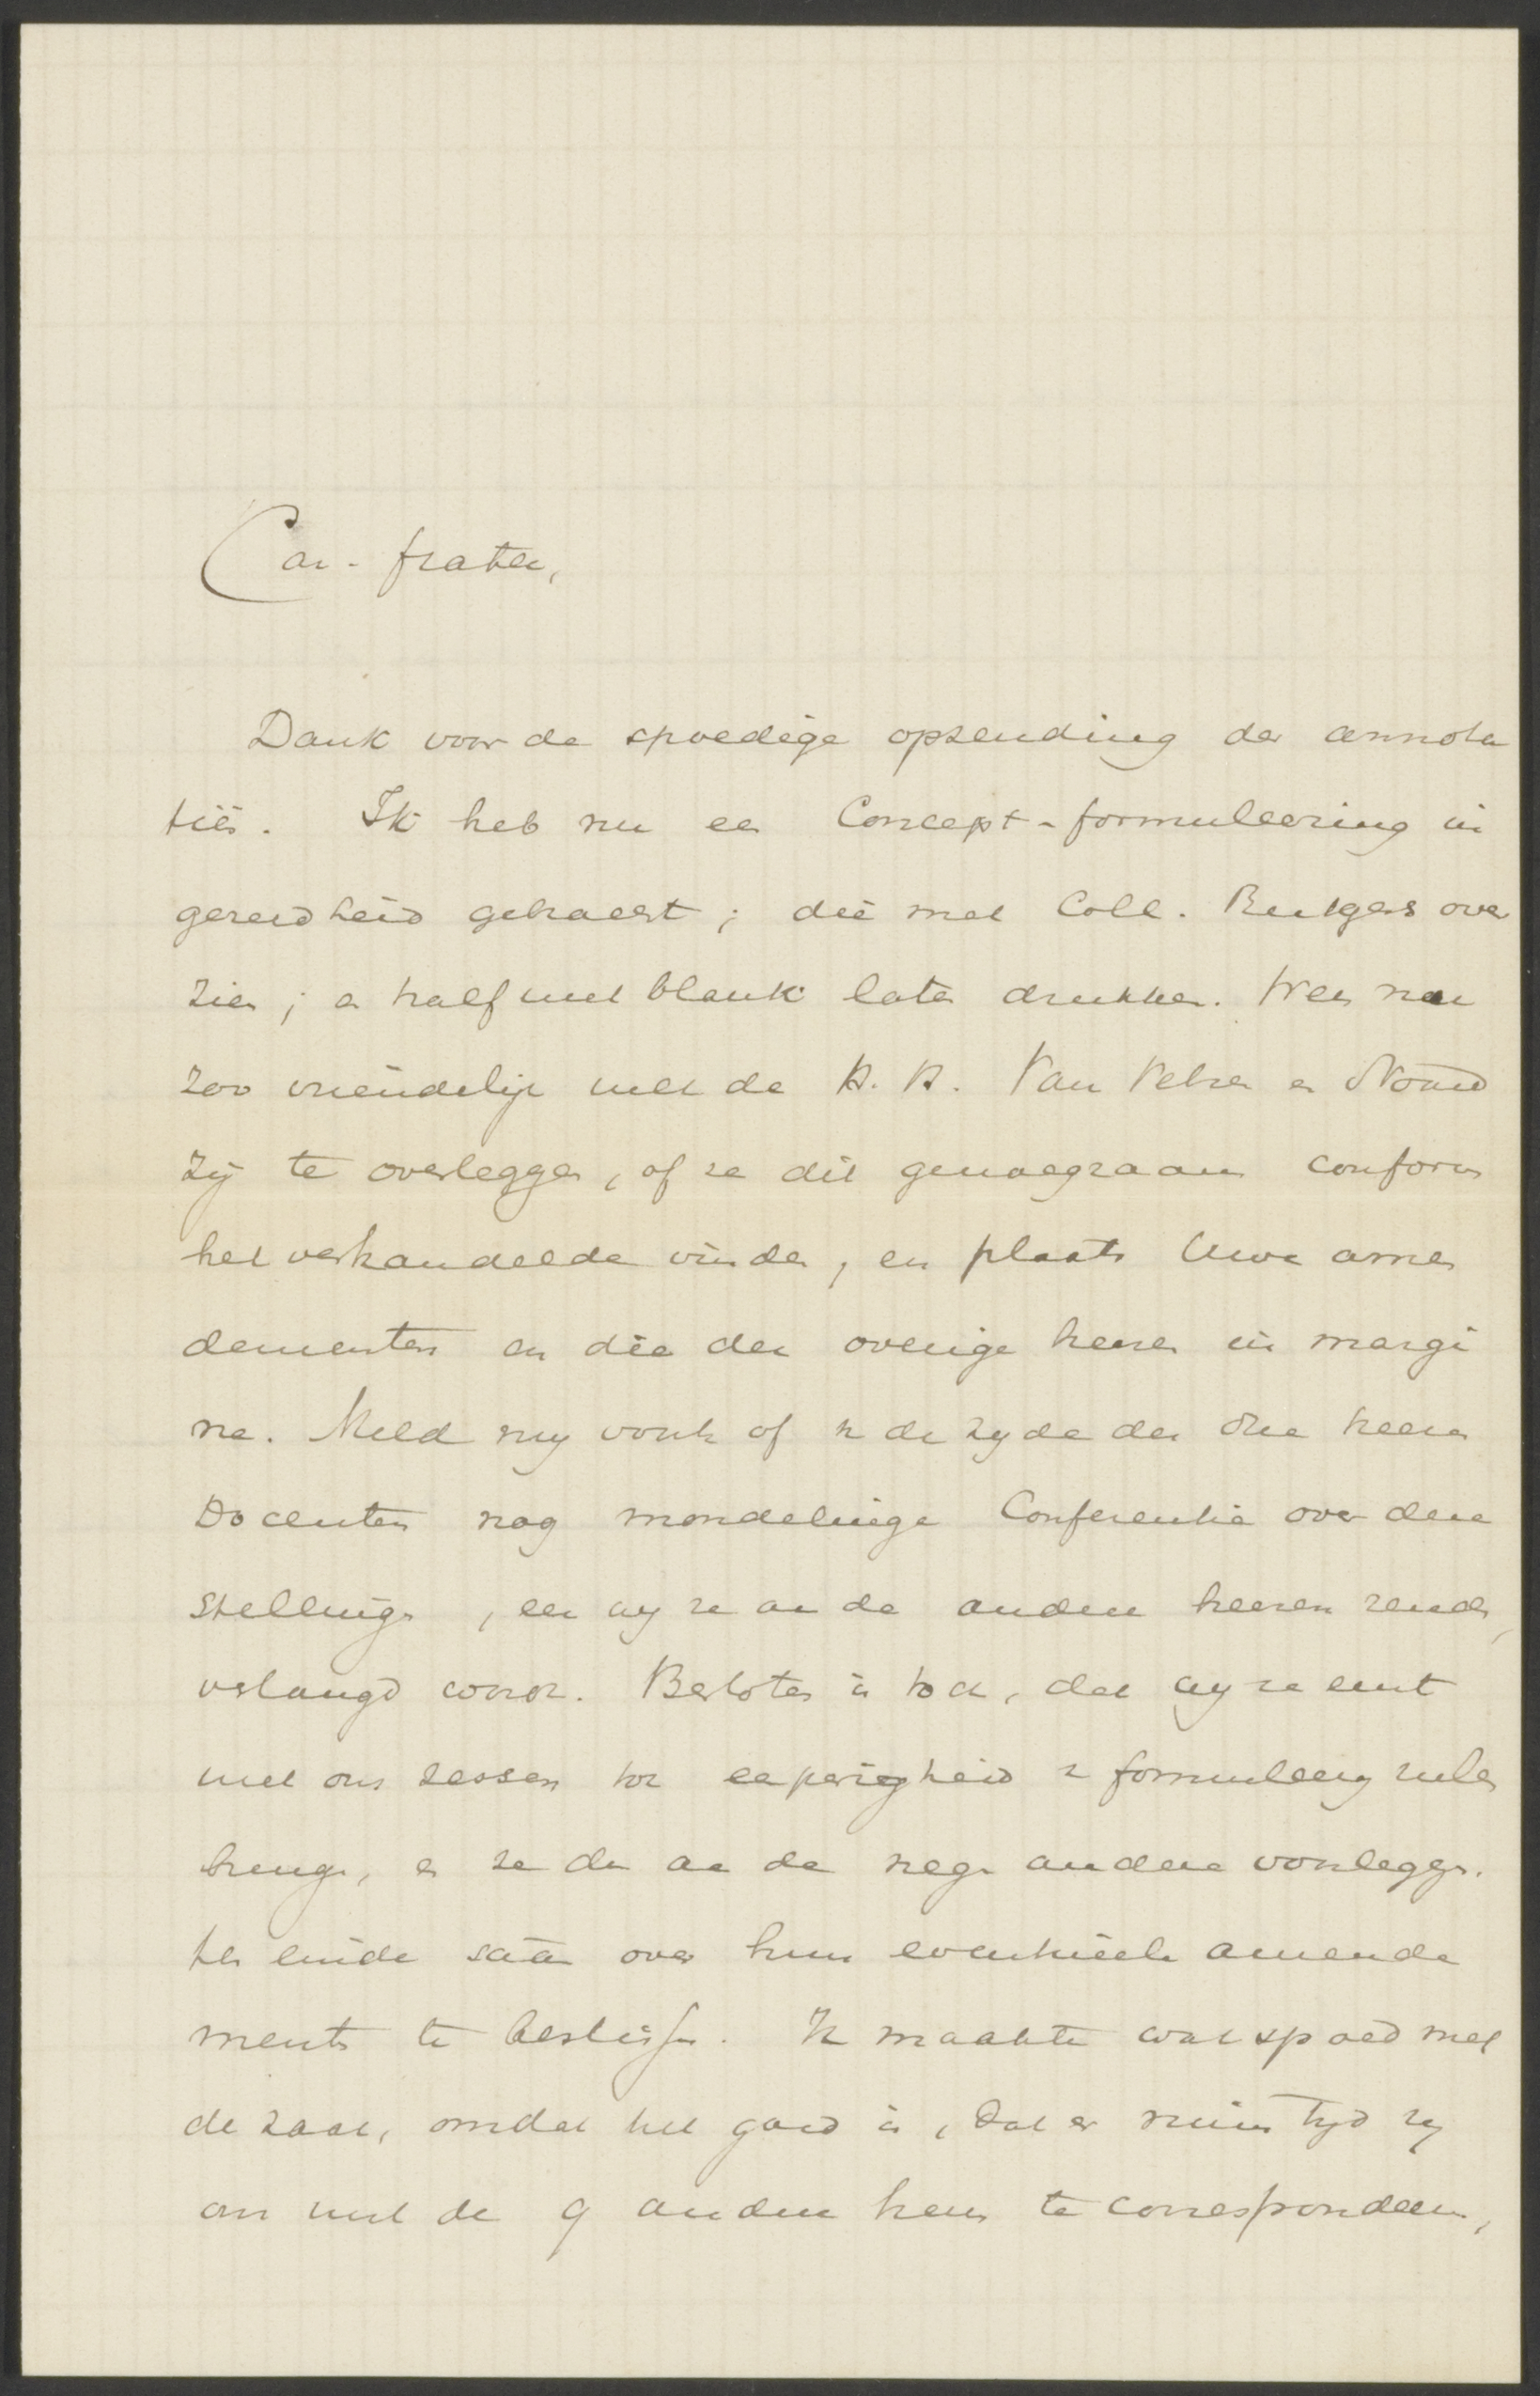 Car. frater,
Dank voor de spoedige opzending der annota
tiën. Ik heb nu een Concept-formuleering in
gereedheid gebracht; die met Coll. Rutgers over
zien; en half met blank laten drukken. Wees nu
zoo vriendelijk met de B.B. Van Velzen en Noord
zij te overleggen, of ze dit genoegzaam conform
het verhandelde vinden, en plaats Uwe amen
dementen en die der overige heeren in margi
ne. Meld mij voorts of v. de zijde der drie heeren
Docenten nog mondelinge Conferentie over deze
stellingen, eer wij ze aan de andere heeren zenden,
verlangd wordt. Besloten is toch, dat wij ze eerst
met ons zessen tot eenparigheid v. formuleering zullen
brengen, en ze dan aan de negen andere voorleggen.
ten einde saam over hun eventueele amende
menten te beslissen. Ik maakte wat spoed met
de zaak, omdat het goed is, dat er ruim tijd zij
om met de 9 andere heeren te correspondeeren,